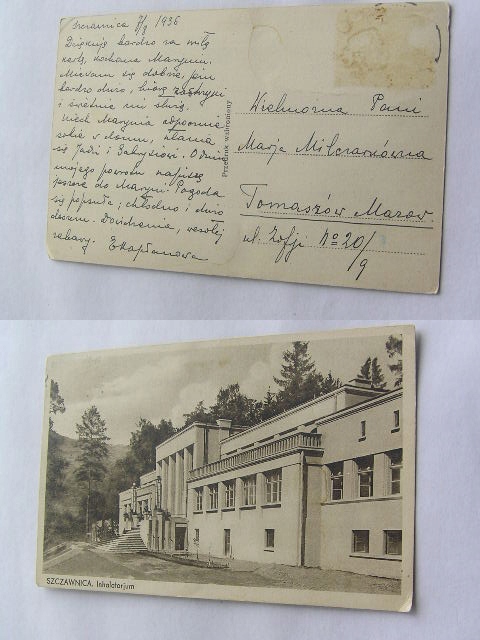 Szczawnica 8/8 1936
Dziękuję bardzo za miłą
kartę, kochana Maryniu.
Miewam się dobrze, piję
bardzo dużo, biorę
i świetnie mi służą.
Niech Marynia odpocznie
sobie w domu, kłania
się Jadzi i O dniu
mojego powrotu napiszę
jeszcze do Maryni. Pogoda
się popsuła; chłodno i dużo
deszczu. Dowidzenia, wesołej
zabawy. ZKapłanowa
Przedruk wzbroniony
Wielmożna Pani
Marja Milczarkówna
Tomaszów Mazow.
ul. Zofji No 20/
9
SZCZAWNICA. Inhalatorjum